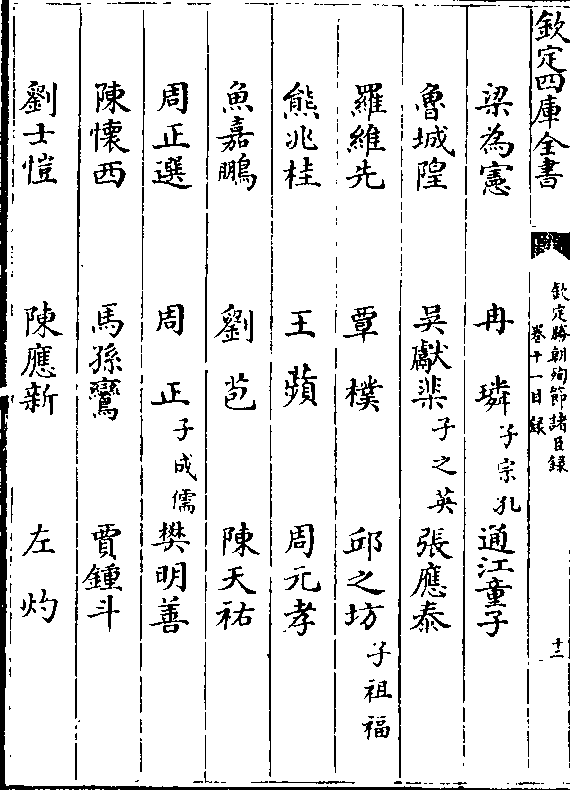 欽定四庫全書
欽定勝朝殉節諸臣錄
卷十一目錄
十二
梁為憲 冉璘子宗孔 通江童子
魯城隍 吳獻棐子之英 張應泰
羅維先 覃樸 邱之坊子祖福
熊兆桂 王蘋 周元孝
魚嘉鵬 劉苞 陳天祐
周正選 周正子成儒 樊明善
陳懷西 馬孫鸞 賈鍾斗
劉士愷 陳應新 左灼